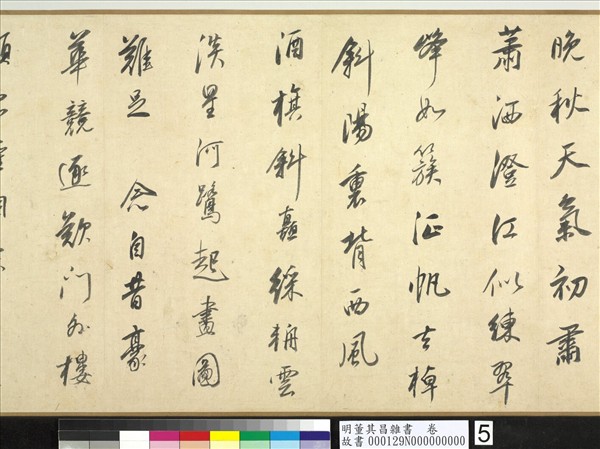 晚秋天氣初肅
蕭洒澄江似練翠
峰如簇征帆去棹
斜陽裏背西風
酒旗斜矗綵舟雲
淡星河鷺起畫圖
難足 念自昔豪
華競逐歎門外樓
明董其昌雜書 卷
故書 000129N000000000
5